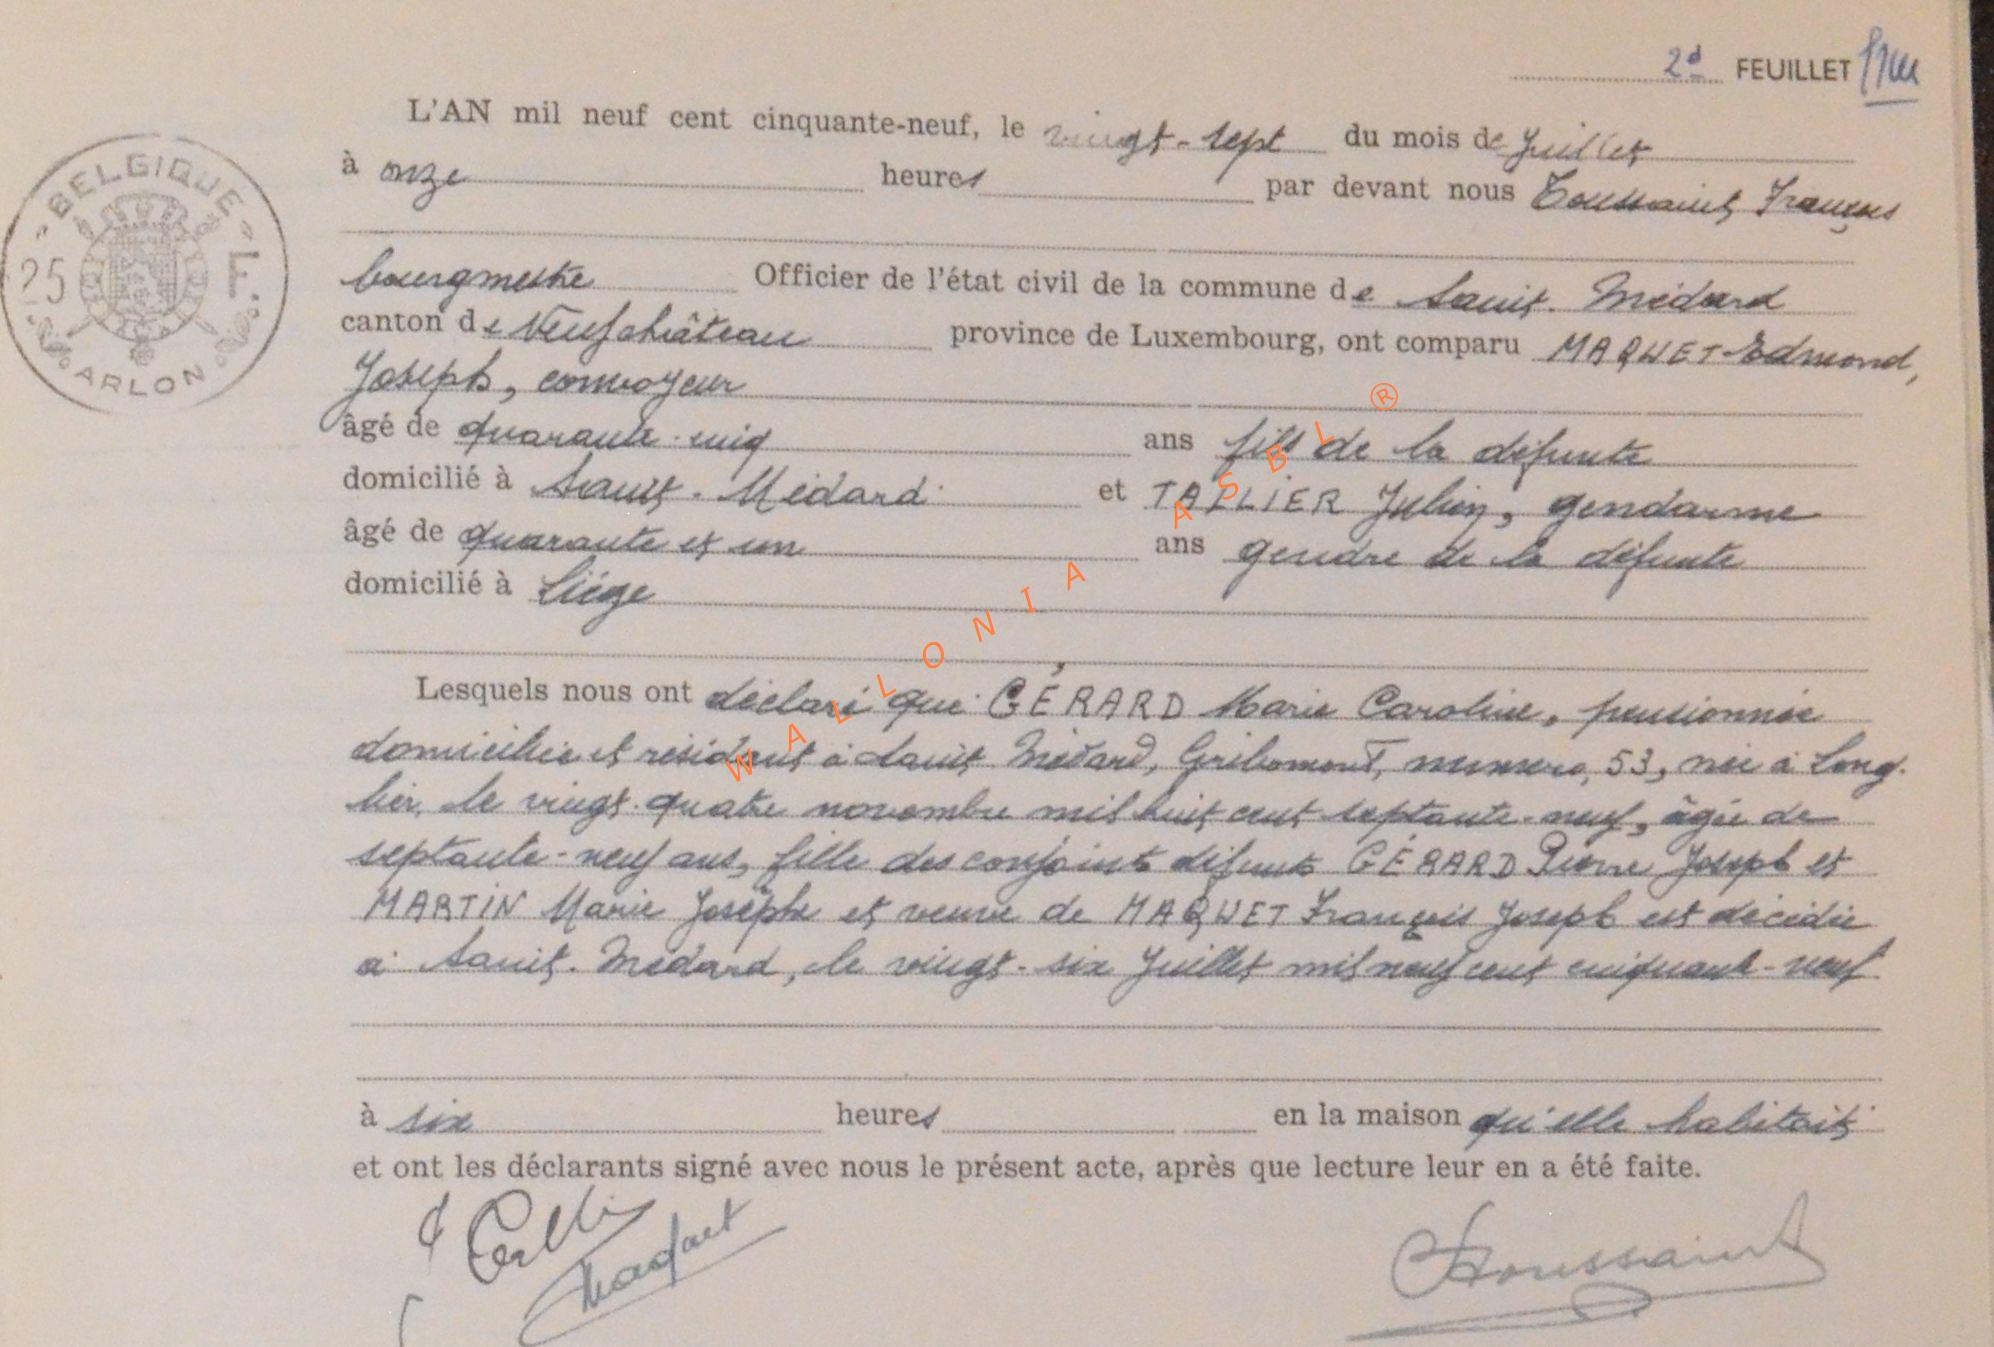 2d FEUILLET
L'AN mil neuf cent cinquante-neuf, le vingt-sept du mois de Juillet
à onze heures par devant nous Toussaint, François
bourgmestre Officier de l'état civil de la commune de Saint-Médard
canton de Neufchâteau province de Luxembourg, ont comparu MAQUET Edmond,
Joseph, convoyeur
âgé de quarante-cinq ans fils de la défunte
domicilié à Saint-Médard et TALLIER Julien, gendarme
âgé de quarante et un ans gendre de la défunte
domicilié à Liége
Lesquels nous ont déclaré que GÉRARD Marie Caroline, pensionnée
domiciliée et résidant à Saint Médard, Gribomont, numéro, 53, née à Long-
lier, le vingt-quatre novembre mil huit cent septante-neuf, âgée de
septante-neuf ans, fille des conjoints défunts GÉRARD Pierre Joseph et
MARTIN Marie Josèphe et veuve de MAQUET François Joseph est décédée
à Saint-Médard, le vingt-six Juillet mil neuf cent cinquante-neuf
à six heures en la maison qu'elle habitait
et ont les déclarants signé avec nous le présent acte, après que lecture leur en a été faite.
Maquet
Toussaint
BELGIQUE
25 F.
ARLON
WALLONIA ASBL ®